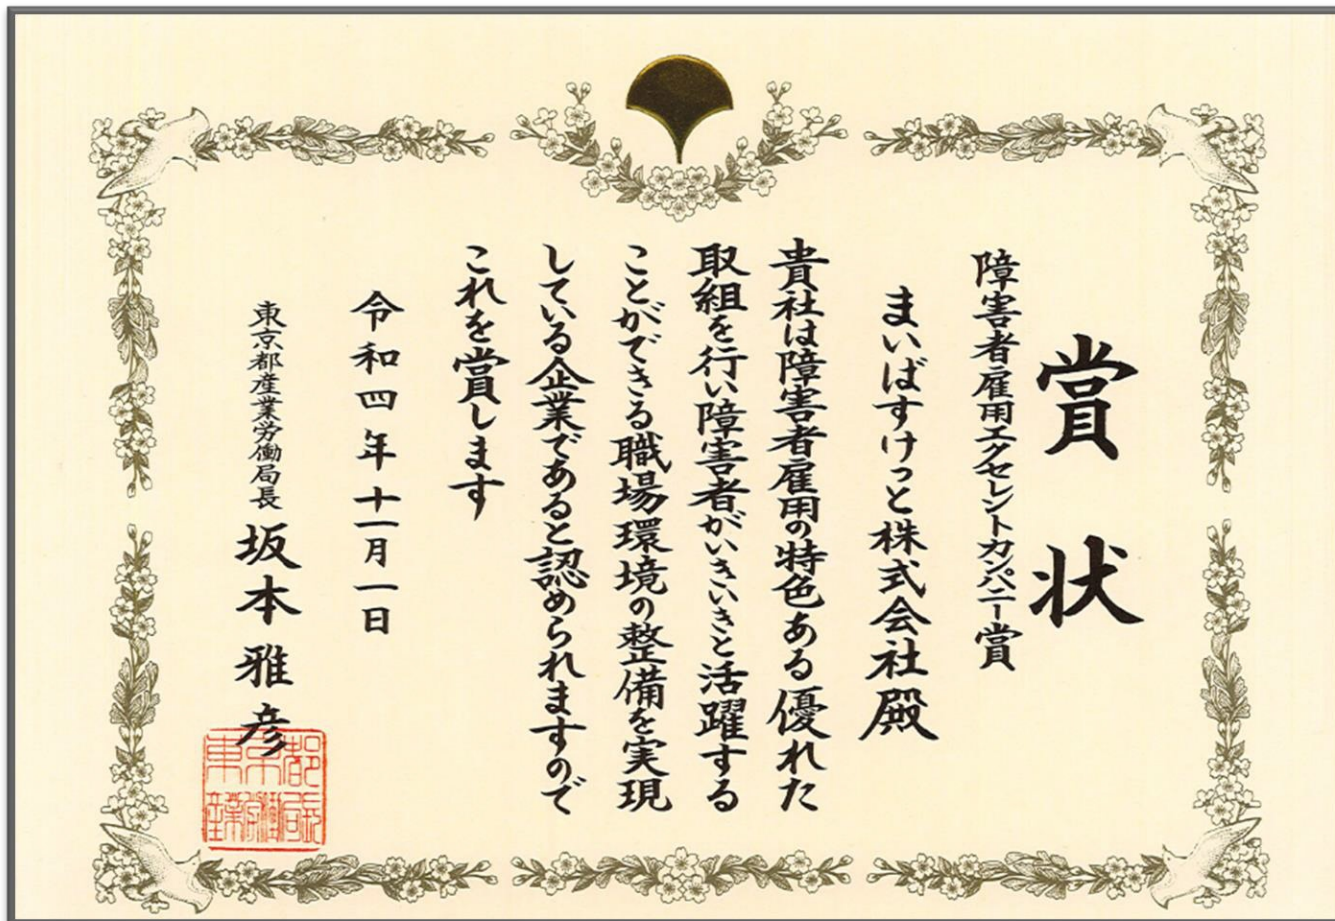 賞状
障害者雇用エクセレントカンパニー賞
まいばすけっと株式会社殿
貴社は障害者雇用の特色ある優れた
取組を行い障害者がいきいきと活躍する
ことができる職場環境の整備を実現
している企業であると認められますので
これを賞します
令和四年十一月一日
東京都産業労働局長 坂本雅彦